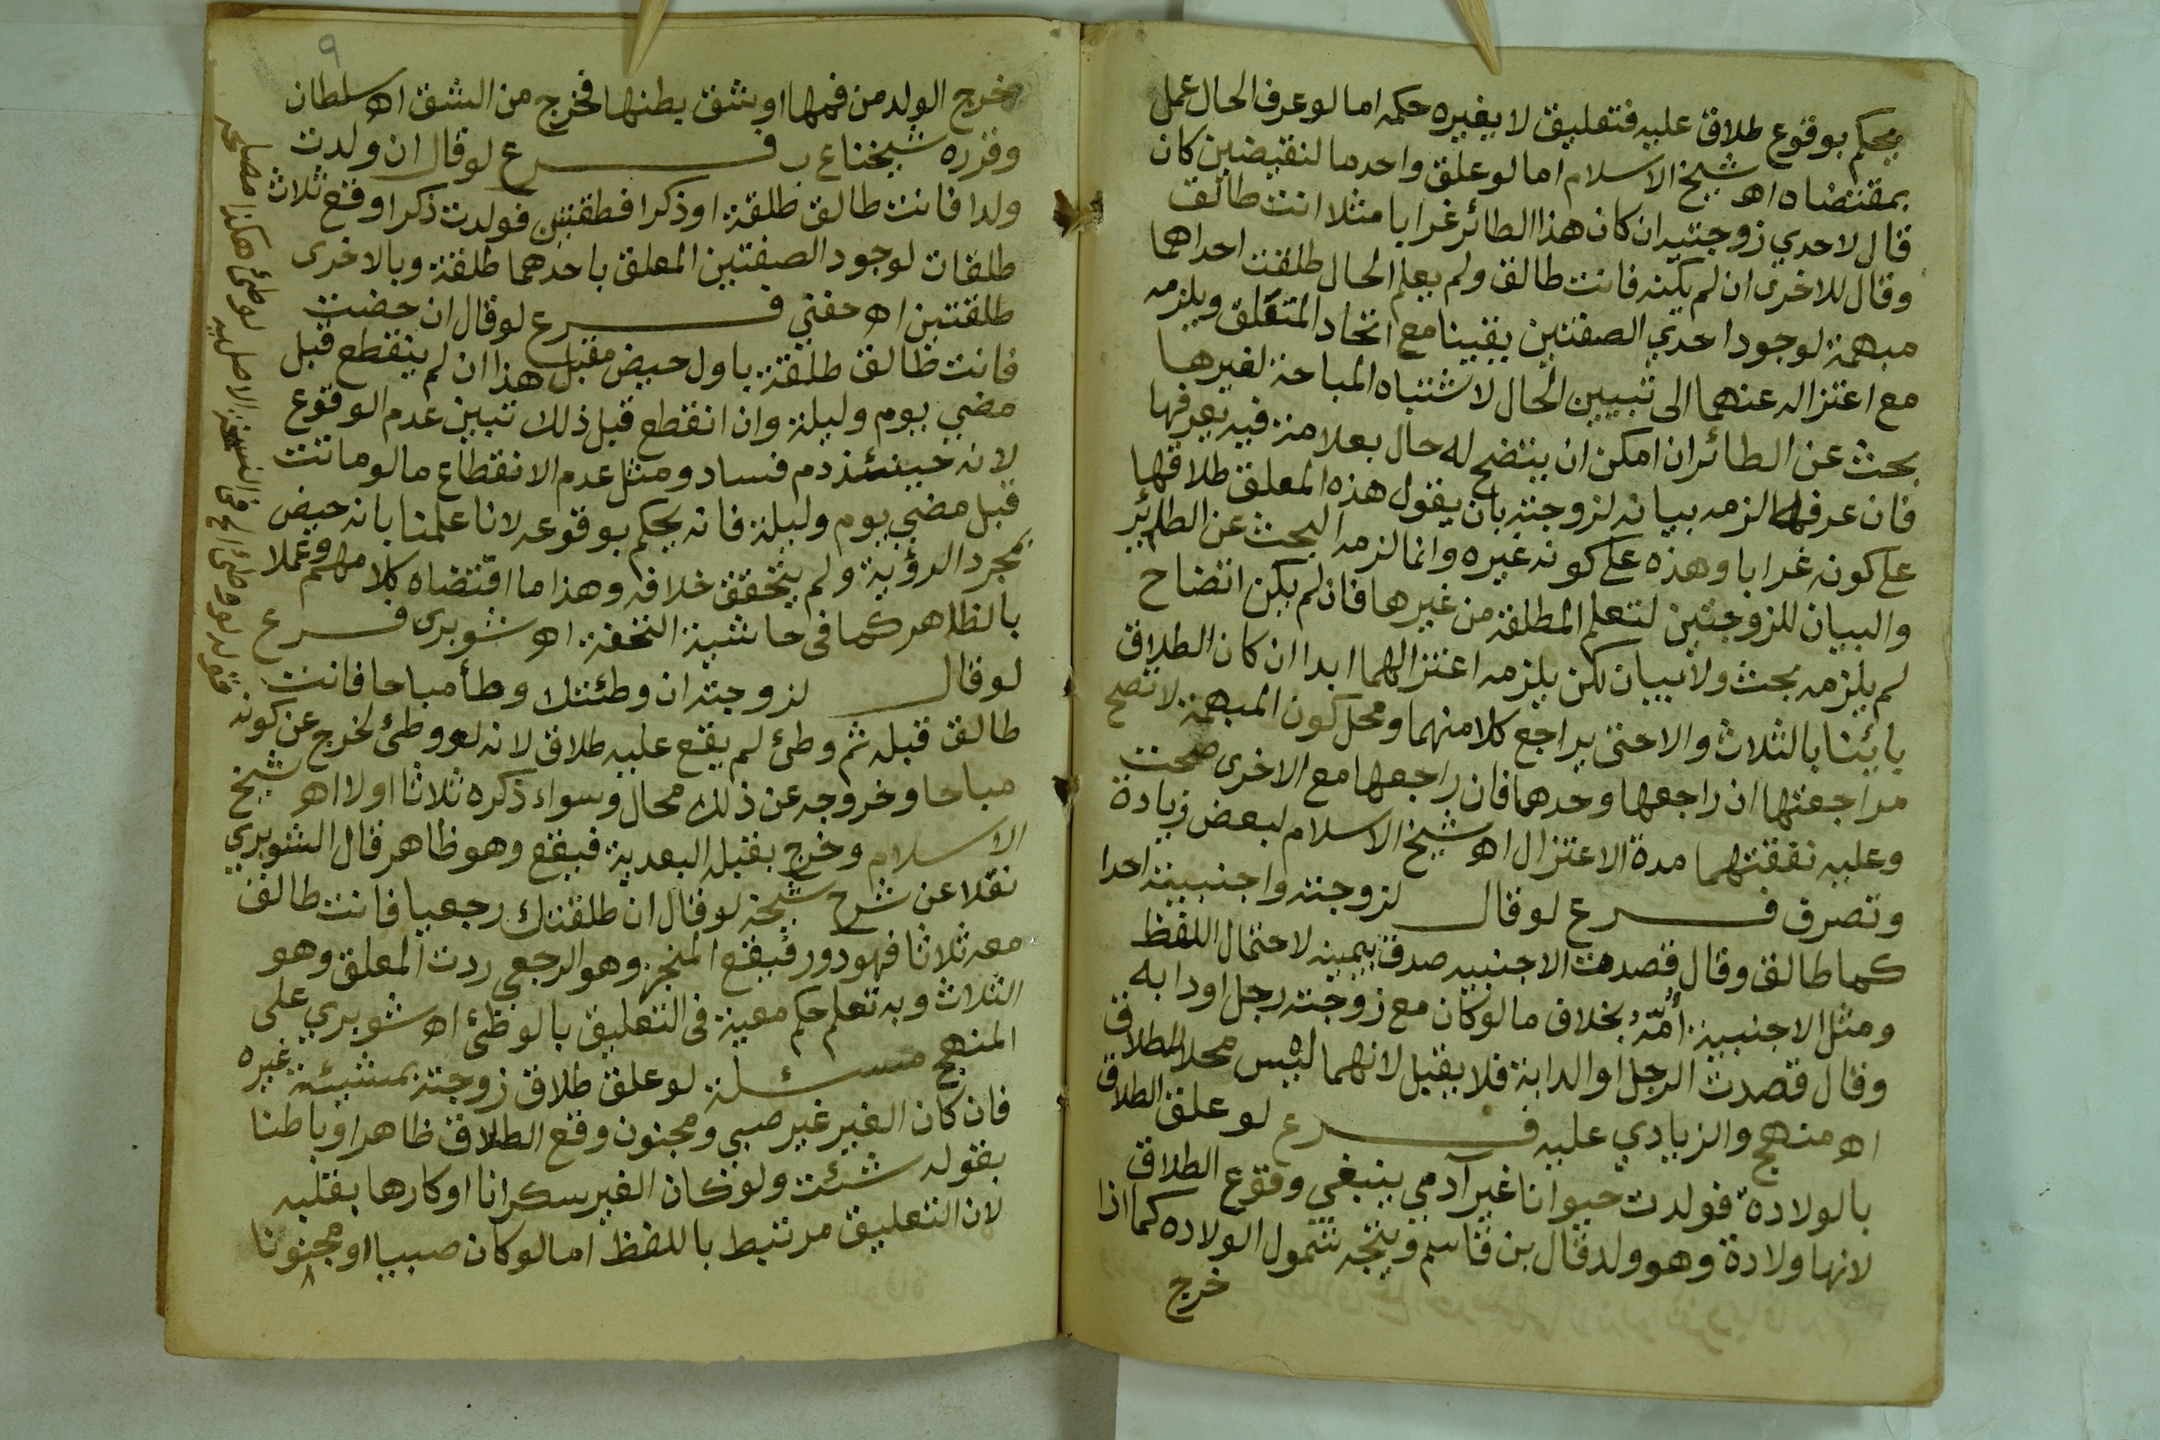 يحكم بوقوع طلاق عليه فتعليق لا يغيره حكمه اما لو عرف الحال عمل
بمقتضاه اه شيخ الاسلام اما لو علق واحد ما لنقيضين كان
قال لاحدي زوجتيه ان كان هذا الطائر غرابا مثلا انت طالق
وقال للاخرى ان لم يكنه فانت طالق ولم يعلم الحال طلقت احداهما
مبهمة لوجود احدي الصفتين يقينا مع اتحاد المتعلق ويلزمه
مع اعتزاله عنهما الى تبيين الحال لاشتباه المباحة لغيرها
بحث عن الطائر ان امكن ان يتضح له حال بعلامة فيه يعرفها
فان عرفها لزمه بيانه لزوجته بان يقول هذه المعلق طلاقها
على كونه غرابا وهذه على كونه غيره وانما لزمه البحث عن الطائر
والبيان للزوجتين لتعلم المطلقة من غيرها فان لم يكن اتضاح
لم يلزمه بحث ولا بيان لكن يلزمه اعتزالهما ابدا ان كان الطلاق
بائنا بالثلاث والا حتى يراجع كلا منهما ومحل كون المبهمة لا تصح
مراجعتها ان راجعها وحدهما فان راجعها مع الاخرى صحت
وعليه نفقتهما مدة الاعتزال اه شيخ الاسلام لبعض زيادة
وتصرف فرع لو قال لزوجته واجنبية احدا
كما طالق وقال قصدت الاجنبيه صدق بيمينه لاحتمال اللفظ
ومثل الاجنبية أمّة بخلاف ما لو كان مع زوجته رجل او دابه
وقال قصدت الرجل او الدابة فلا يقبل لانهما ليس محلا للطلاق
اه منهج والزيادي عليه فرع لو علق الطلاق
بالولادة فولدت حيوانا غير آدمي ينبغي وقوع الطلاق
لانها ولادة وهو ولد قال بن قاسم ويتجه شمول الولاده كما اذا
خرج
٩
خرج الولد من فمها او شق بطنها فخرج من الشق اه سلطان
وقرره شيخنا ع ب فرع لو قال ان ولدت
ولدا فانت طالق طلقة او ذكرا فطلقتين فولدت ذكرا وقع ثلاث
طلقات لوجود الصفتين المعلق باحدهما طلقة وبالاخرى
طلقتين اه حفني فرع لو قال ان حضت
فانت طالق طلقة باول حيض مقبل هذا ان لم ينقطع قبل
مضي يوم وليلة وان انقطع قبل ذلك تبين عدم الوقوع
لانه حينئذ دم فساد ومثل عدم الانقطاع ما لو ماتت
قبل مضي يوم وليلة فانه يحكم بوقوعه لانا علمنا بانه حيض
بمجرد الرؤية ولم يتحقق خلافه وهذا ما اقتضاه كلامهم وعملا
بالظاهر كما فى حاشية التحفة اه شوبرى فرع
لو قال لزوجته ان وطئتك وطأ مباحا فانت
طالق قبله ثم وطئ لم يقع عليه طلاق لانه لو وطئ لخرج عن كونه
مباحا وخروجه عن ذلك محال وسواء ذكره ثلاثا او لا اه شيخ
الاسلام وخرج بقبله البعدية فيقع وهو ظاهر قال الشوبري
نقلا عن شرح شيخه لو قال ان طلقتك رجعيا فانت طالق
معه ثلاثا فهو دور فيقع المنجز وهو الرجعي ردت المعلق وهو
الثلاث وبه تعلم حكم معية فى التعليق بالوطئ اه شوبري على
المنهج مسئلة لو علق طلاق زوجته بمشيئة غيره
فان كان الغير غير صبي ومجنون وقع الطلاق ظاهرا وباطنا
بقوله شئت ولو كان الغير سكرانا او كارها بقلبه
لان التعليق مرتبط باللفظ اما لو كان صبيا او مجنونا
قوله لو وطئ الخ فى النسخة الاصلية لوطئ هكذا مصلحه